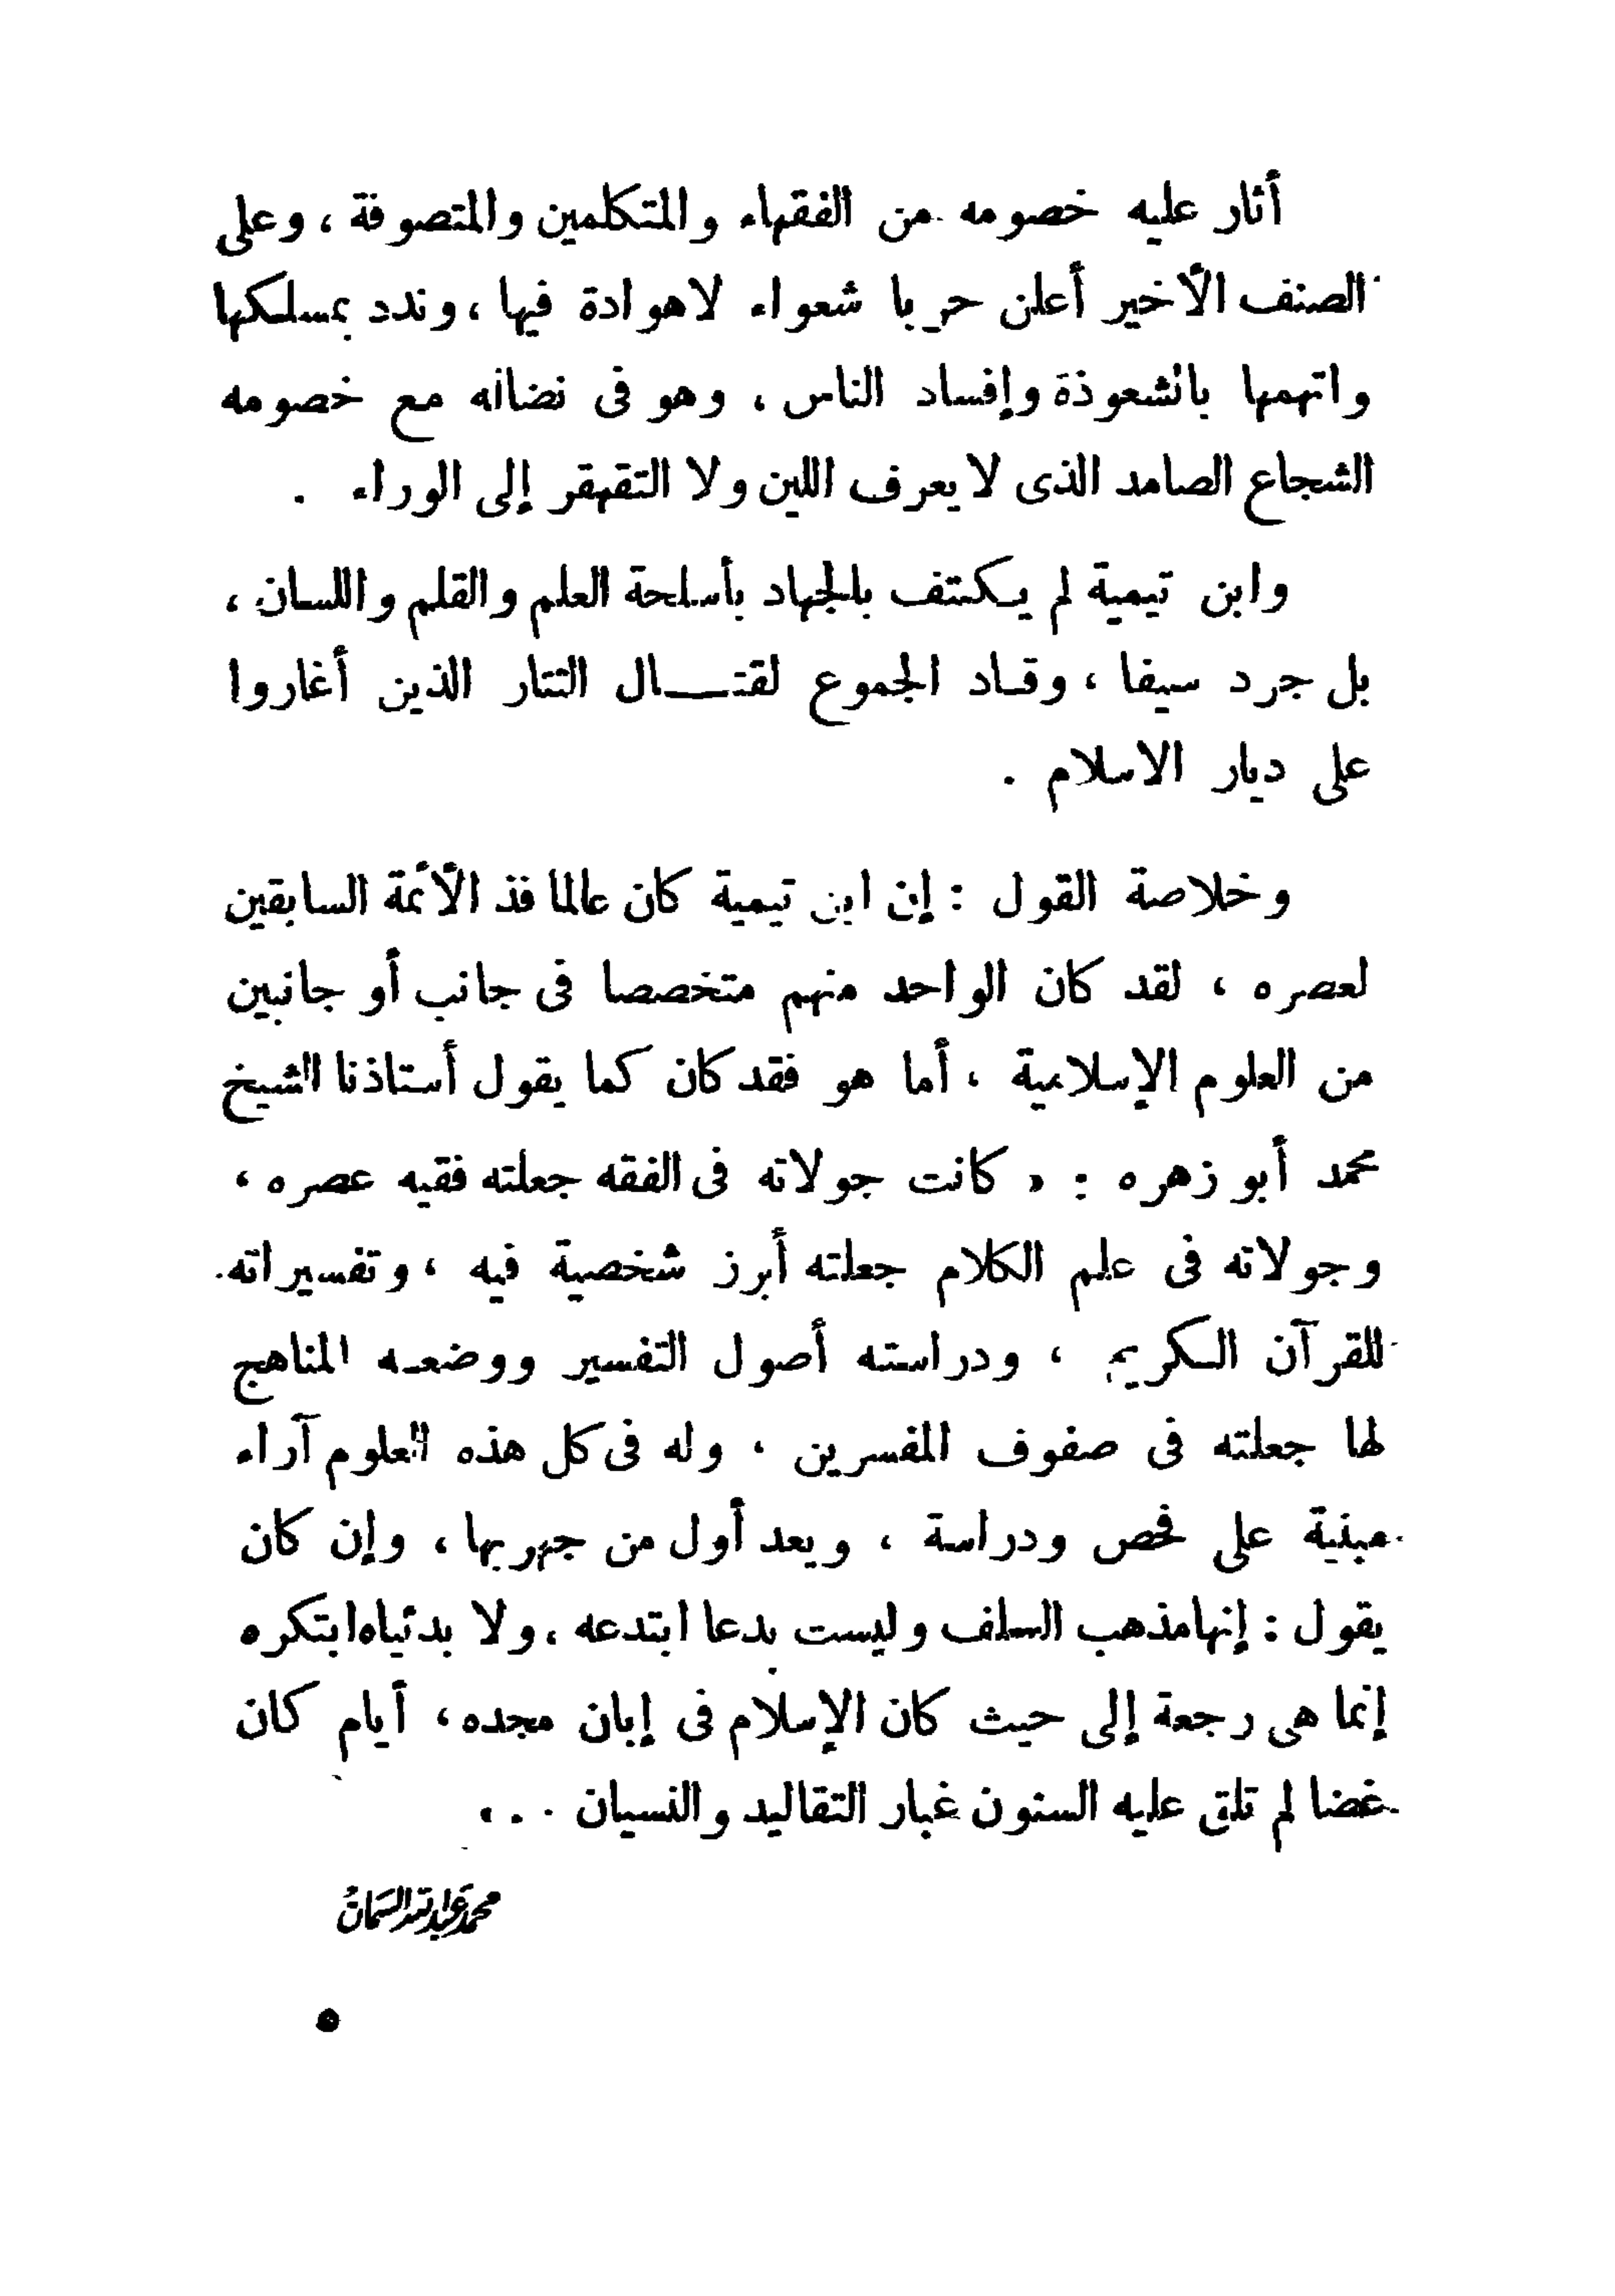 أثار عليه خصومه من الفقهاء والمتكلمين والمتصوفة ، وعلى
الصنف الأخير أعلن حربا شعواء لاهوادة فيها ، وندد بمسلكها
واتهمها بالشعوذة وإفساد الناس ، وهو فى نضاله مع خصومه
الشجاع الصامد الذى لا يعرف اللين ولا التقهقر إلى الوراء .
وابن تيمية لم يكتف بالجهاد بأسلحة العلم والقلم واللسان ،
بل جرد سيفا ، وقاد الجموع لقتـــال التتار الذين أغاروا
على ديار الاسلام .
وخلاصة القول : إن ابن تيمية كان عالما فذ الأئمة السابقين
لعصره ، لقد كان الواحد منهم متخصصا فى جانب أو جانبين
من العلوم الإسلامية ، أما هو فقد كان كما يقول أستاذنا الشيخ
محمد أبو زهره : « كانت جولاته فى الفقه جعلته فقيه عصره ،
وجولاته فى علم الكلام جعلته أبرز شخصية فيه ، وتفسيراته
للقرآن الكريم ، ودراسته أصول التفسير ووضعه المناهج
لها جعلته فى صفوف المفسرين ، وله فى كل هذه العلوم آراء
مبنية على فحص ودراسة ، ويعد أول من جهر بها ، وإن كان
يقول : إنها مذهب السلف وليست بدعا ابتدعه ، ولا بدئياه ابتكره
إنما هى رجعة إلى حيث كان الإسلام فى إبان مجده ، أيام كان
غضا لم تلق عليه السنون غبار التقاليد والنسيان . . .
محمد عبد الله السمان
٥